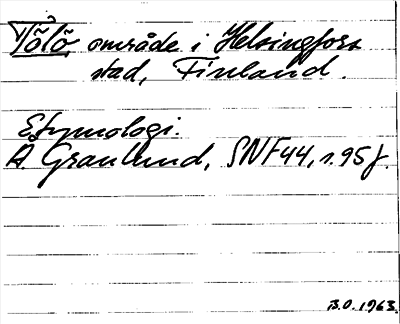 Tölö område i Helsingfors
stad, Finland.
Etymologi.
A. Granlund, SNF 44, s. 95 f.
B.O. 1963.